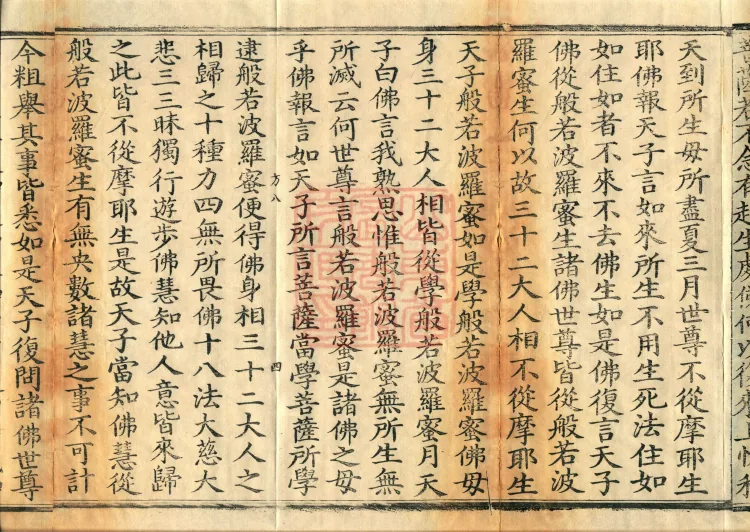 天到所生母所盡夏三月世尊不從摩耶生
耶佛報天子言如來所生不用生死法住如
如住如者不來不去佛生如是佛復言天子
佛從般若波羅蜜生諸佛世尊皆從般若波
羅蜜生何以故三十二大人相不從摩耶生
天子般若波羅蜜如是學般若波羅蜜佛母
身三十二大人相皆從學般若波羅蜜月天
子白佛言我熟思惟般若波羅蜜無所生無
所滅云何世尊言般若波羅蜜是諸佛之母
乎佛報言如天子所言菩薩當學菩薩所學
方八 四
逮般若波羅蜜便得佛身相三十二大人之
相歸之十種力四無所畏佛十八法大慈大
悲三三昧獨行遊步佛慧知他人意皆來歸
之此皆不從摩耶生是故天子當知佛慧從
般若波羅蜜生有無央數諸慧之事不可計
今粗舉其事皆悉如是天子復問諸佛世尊